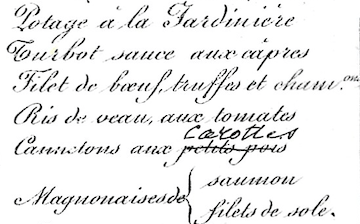 Potage à la Jardinière
Turbot sauce aux câpres
Filet de bœuf, truffes et cham.ons
Ris de veau, aux tomates
Carottes
Cannetons aux petits pois
Magnonaises de { saumon
filets de sole.